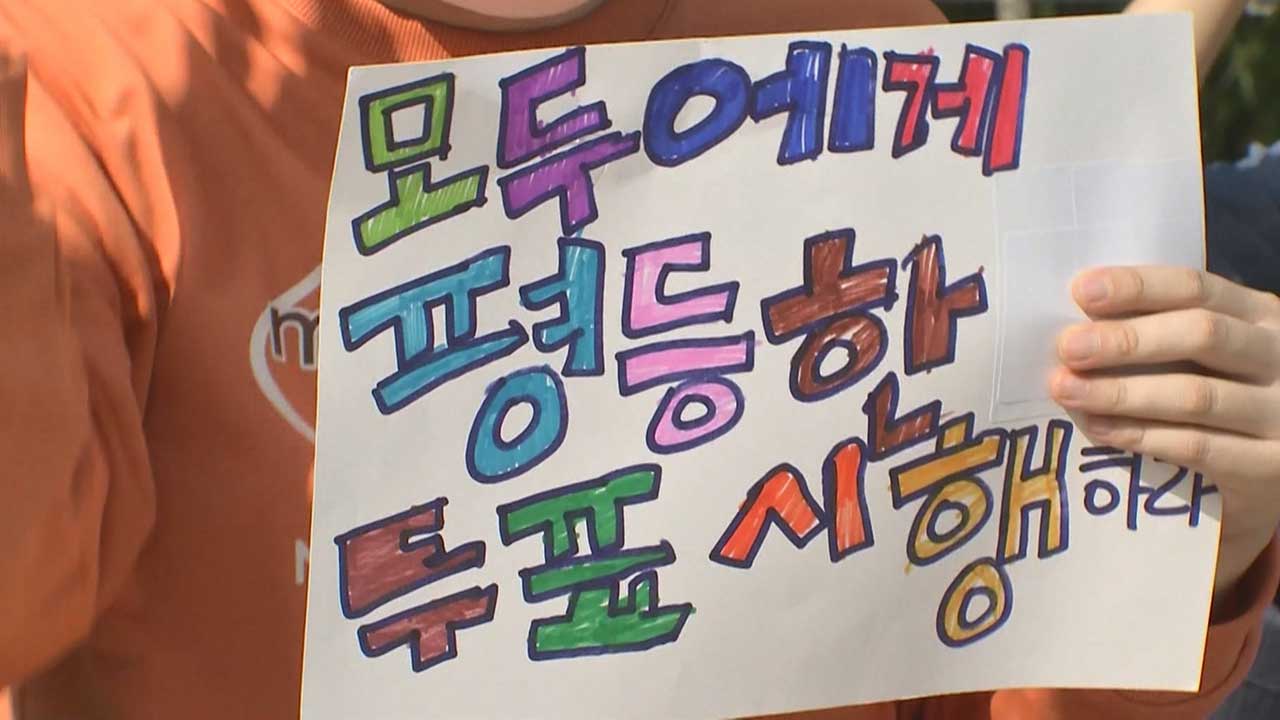 모두에게
평등한
투표 시행하라